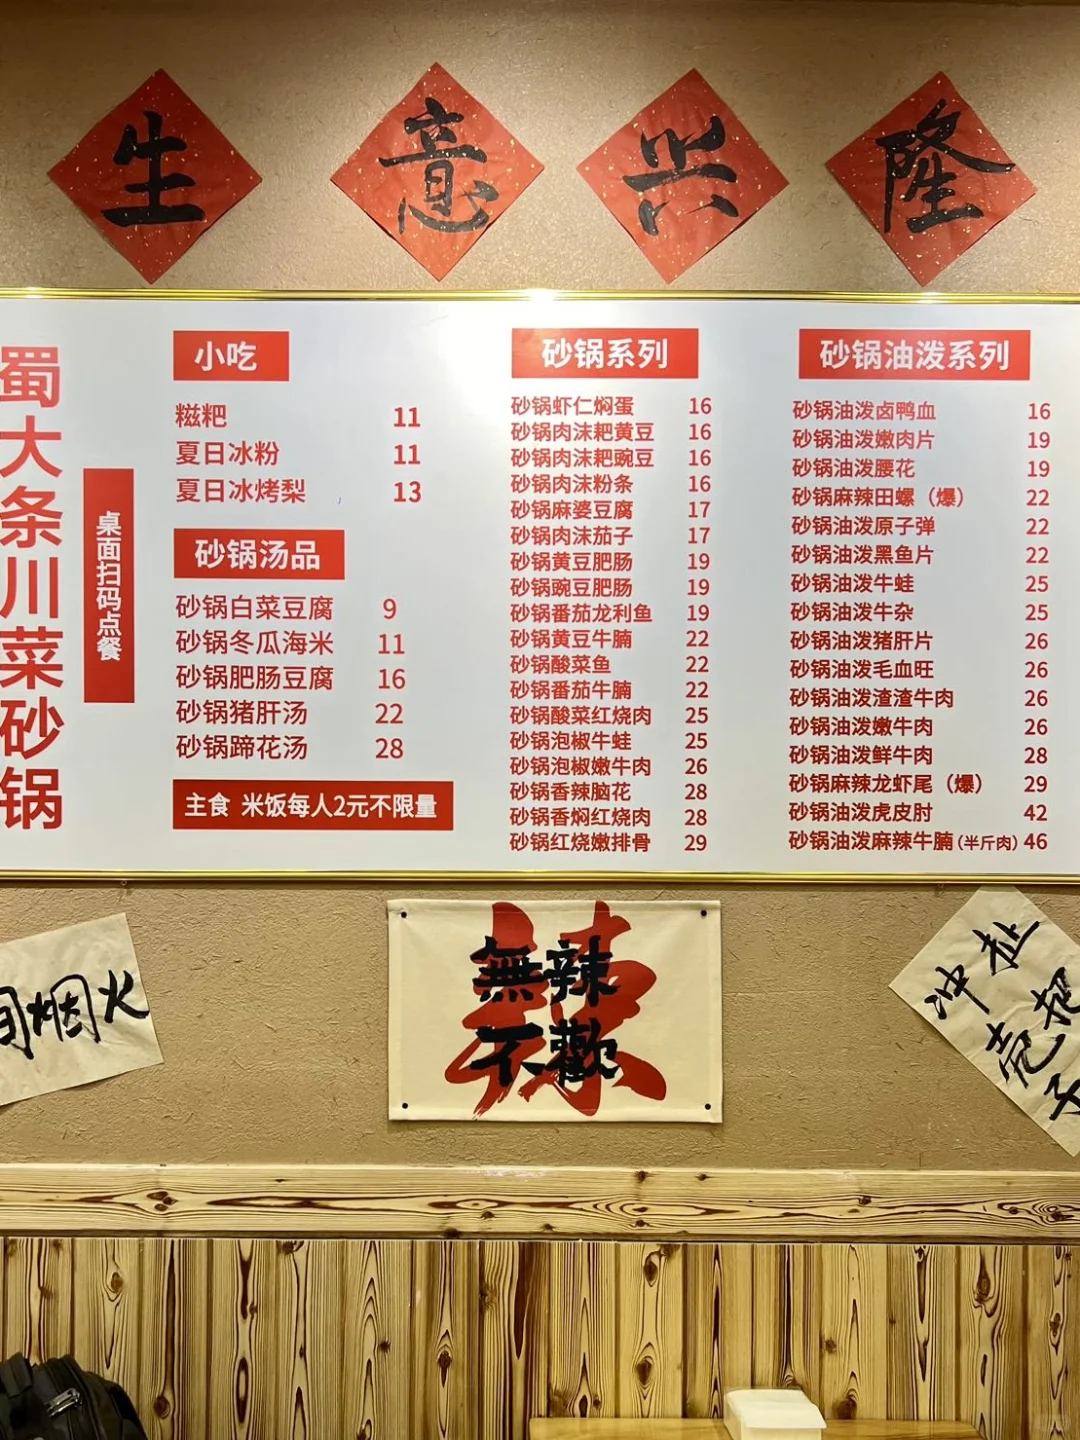 生意兴隆
蜀大条川菜砂锅
桌面扫码点餐
小吃
糍粑 11
夏日冰粉 11
夏日冰烤梨 13
砂锅汤品
砂锅白菜豆腐 9
砂锅冬瓜海米 11
砂锅肥肠豆腐 16
砂锅猪肝汤 22
砂锅蹄花汤 28
主食 米饭每人2元不限量
砂锅系列
砂锅虾仁焖蛋 16
砂锅肉沫耙黄豆 16
砂锅肉沫耙豌豆 16
砂锅肉沫粉条 16
砂锅麻婆豆腐 17
砂锅肉沫茄子 17
砂锅黄豆肥肠 19
砂锅豌豆肥肠 19
砂锅番茄龙利鱼 19
砂锅黄豆牛腩 22
砂锅酸菜鱼 22
砂锅番茄牛腩 22
砂锅酸菜红烧肉 25
砂锅泡椒牛蛙 25
砂锅泡椒嫩牛肉 26
砂锅香辣脑花 28
砂锅香焖红烧肉 28
砂锅红烧嫩排骨 29
砂锅油泼系列
砂锅油泼卤鸭血 16
砂锅油泼嫩肉片 19
砂锅油泼腰花 19
砂锅麻辣田螺（爆） 22
砂锅油泼原子弹 22
砂锅油泼黑鱼片 22
砂锅油泼牛蛙 25
砂锅油泼牛杂 25
砂锅油泼猪肝片 26
砂锅油泼毛血旺 26
砂锅油泼渣渣牛肉 26
砂锅油泼嫩牛肉 26
砂锅油泼鲜牛肉 28
砂锅麻辣龙虾尾（爆） 29
砂锅油泼虎皮肘 42
砂锅油泼麻辣牛腩(半斤肉) 46
烟火
辣
無辣
不歡
冲
壳子